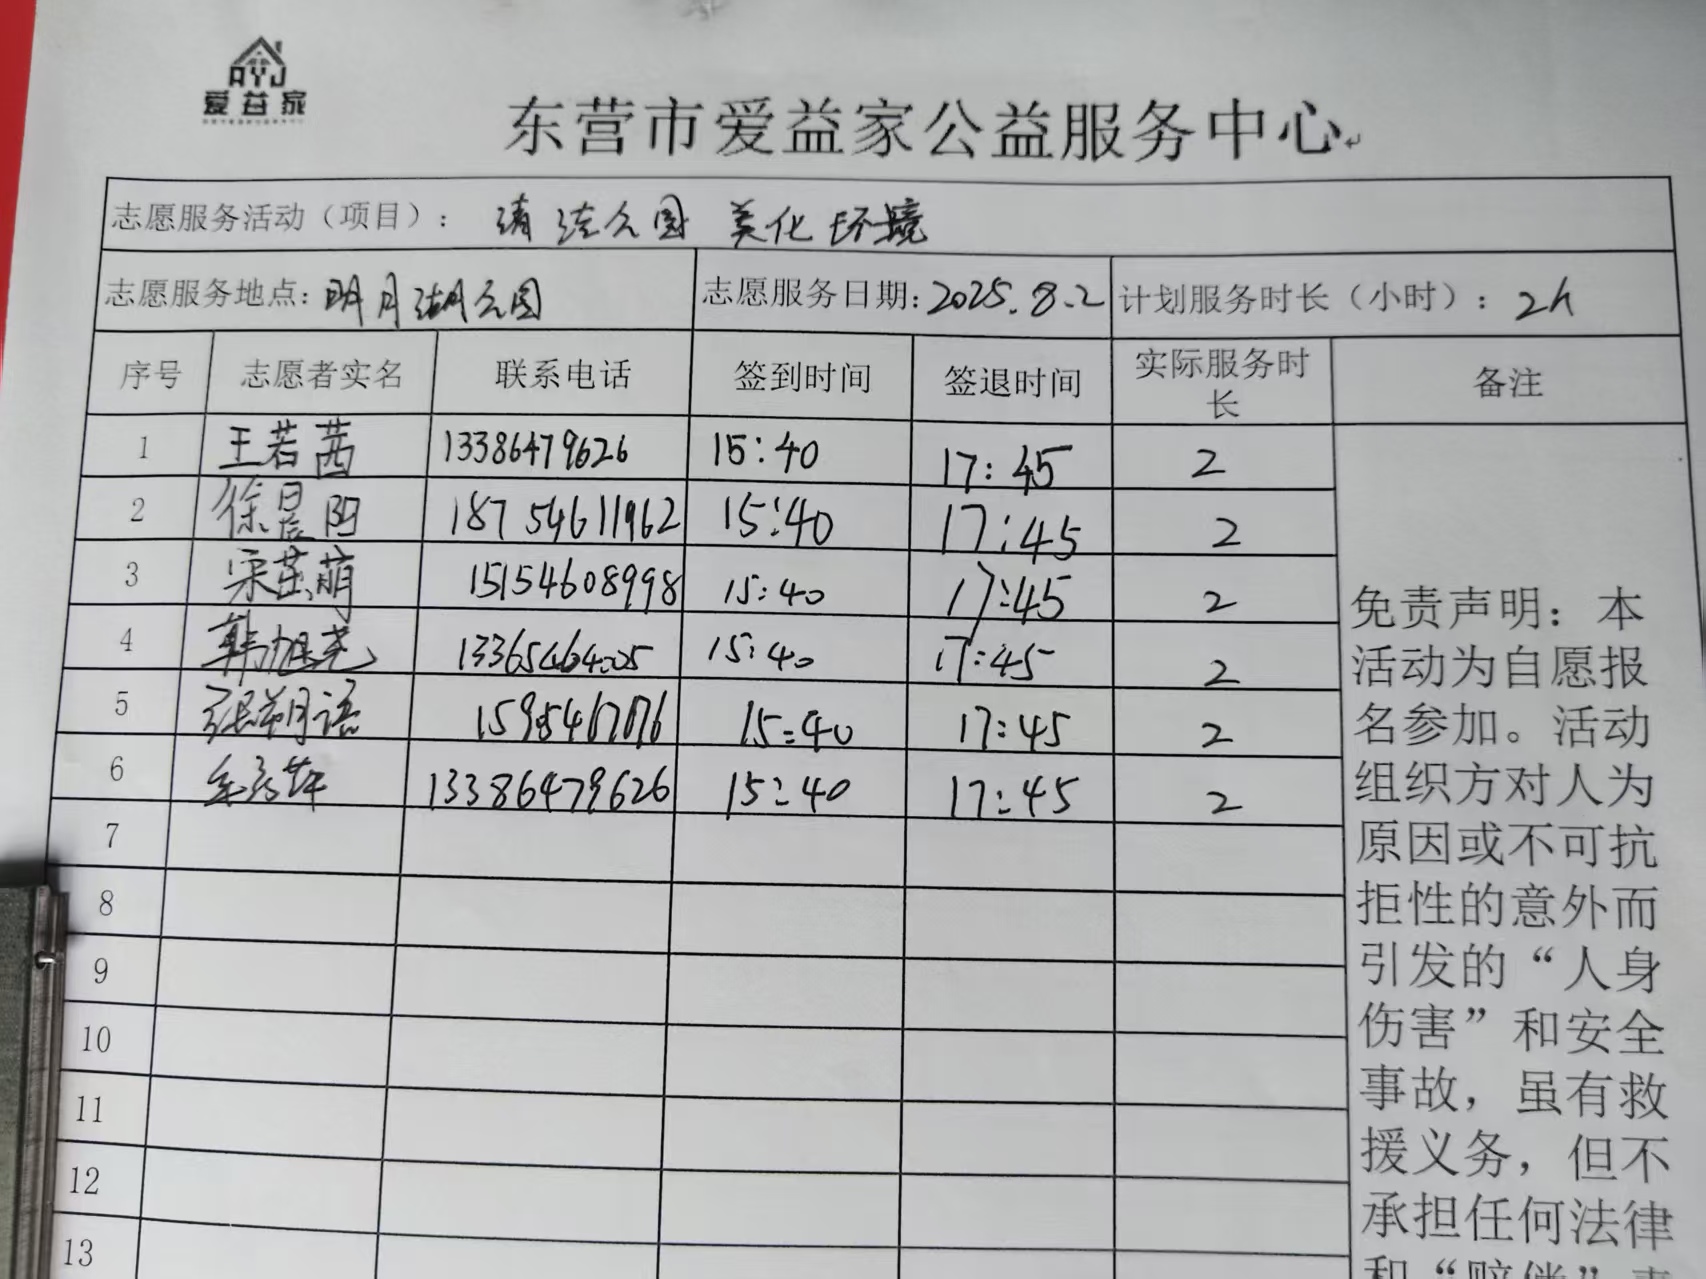 AYJ
爱益家
东营市爱益家公益服务中心
志愿服务活动（项目）： 清洁公园 美化环境
志愿服务地点：明月湖公园 志愿服务日期：2025.8.2 计划服务时长（小时）：2h
序号 志愿者实名 联系电话 签到时间 签退时间 实际服务时长 备注
1 王若茜 13386479626 15:40 17:45 2
2 徐晨阳 18754611962 15:40 17:45 2
3 宋茁萌 15154608998 15:40 17:45 2
4 韩旭尧 15:40 17:45 2
5 张朔语 15:40 17:45 2
6 13386479626 15:40 17:45 2
7
8
9
10
11
12
13
免责声明：本
活动为自愿报
名参加。活动
组织方对人为
原因或不可抗
拒性的意外而
引发的“人身
伤害”和安全
事故，虽有救
援义务，但不
承担任何法律
和“赔偿”责